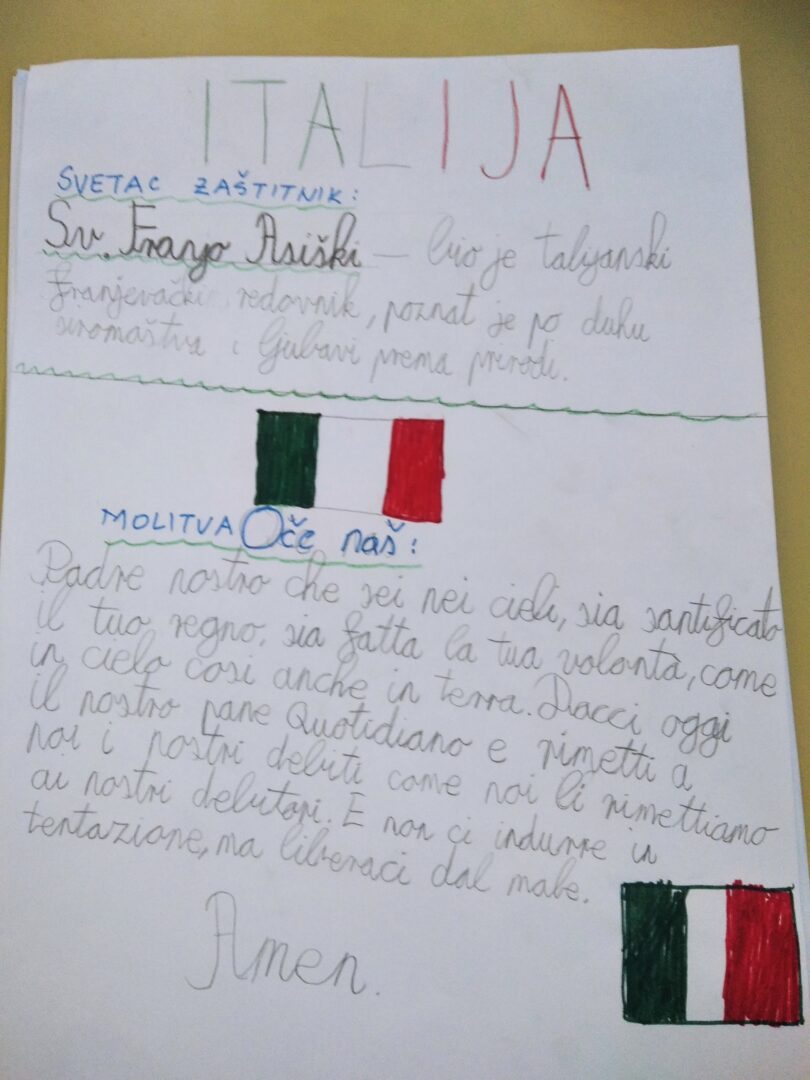 ITALIJA
SVETAC ZAŠTITNIK:
Sv. Franjo Asiški – bio je talijanski
franjevački redovnik, poznat je po duhu
siromaštva i ljubavi prema prirodi.
MOLITVA Oče naš:
Padre nostro che sei nei cieli, sia santificato
il tuo regno, sia fatta la tua volontà, come
in cielo cosi anche in terra. Dacci oggi
il nostro pane Quotidiano e rimetti a
noi i nostri debiti come noi li rimettiamo
ai nostri debitori. E non ci indurre in
tentazione, ma liberaci dal male.
Amen.